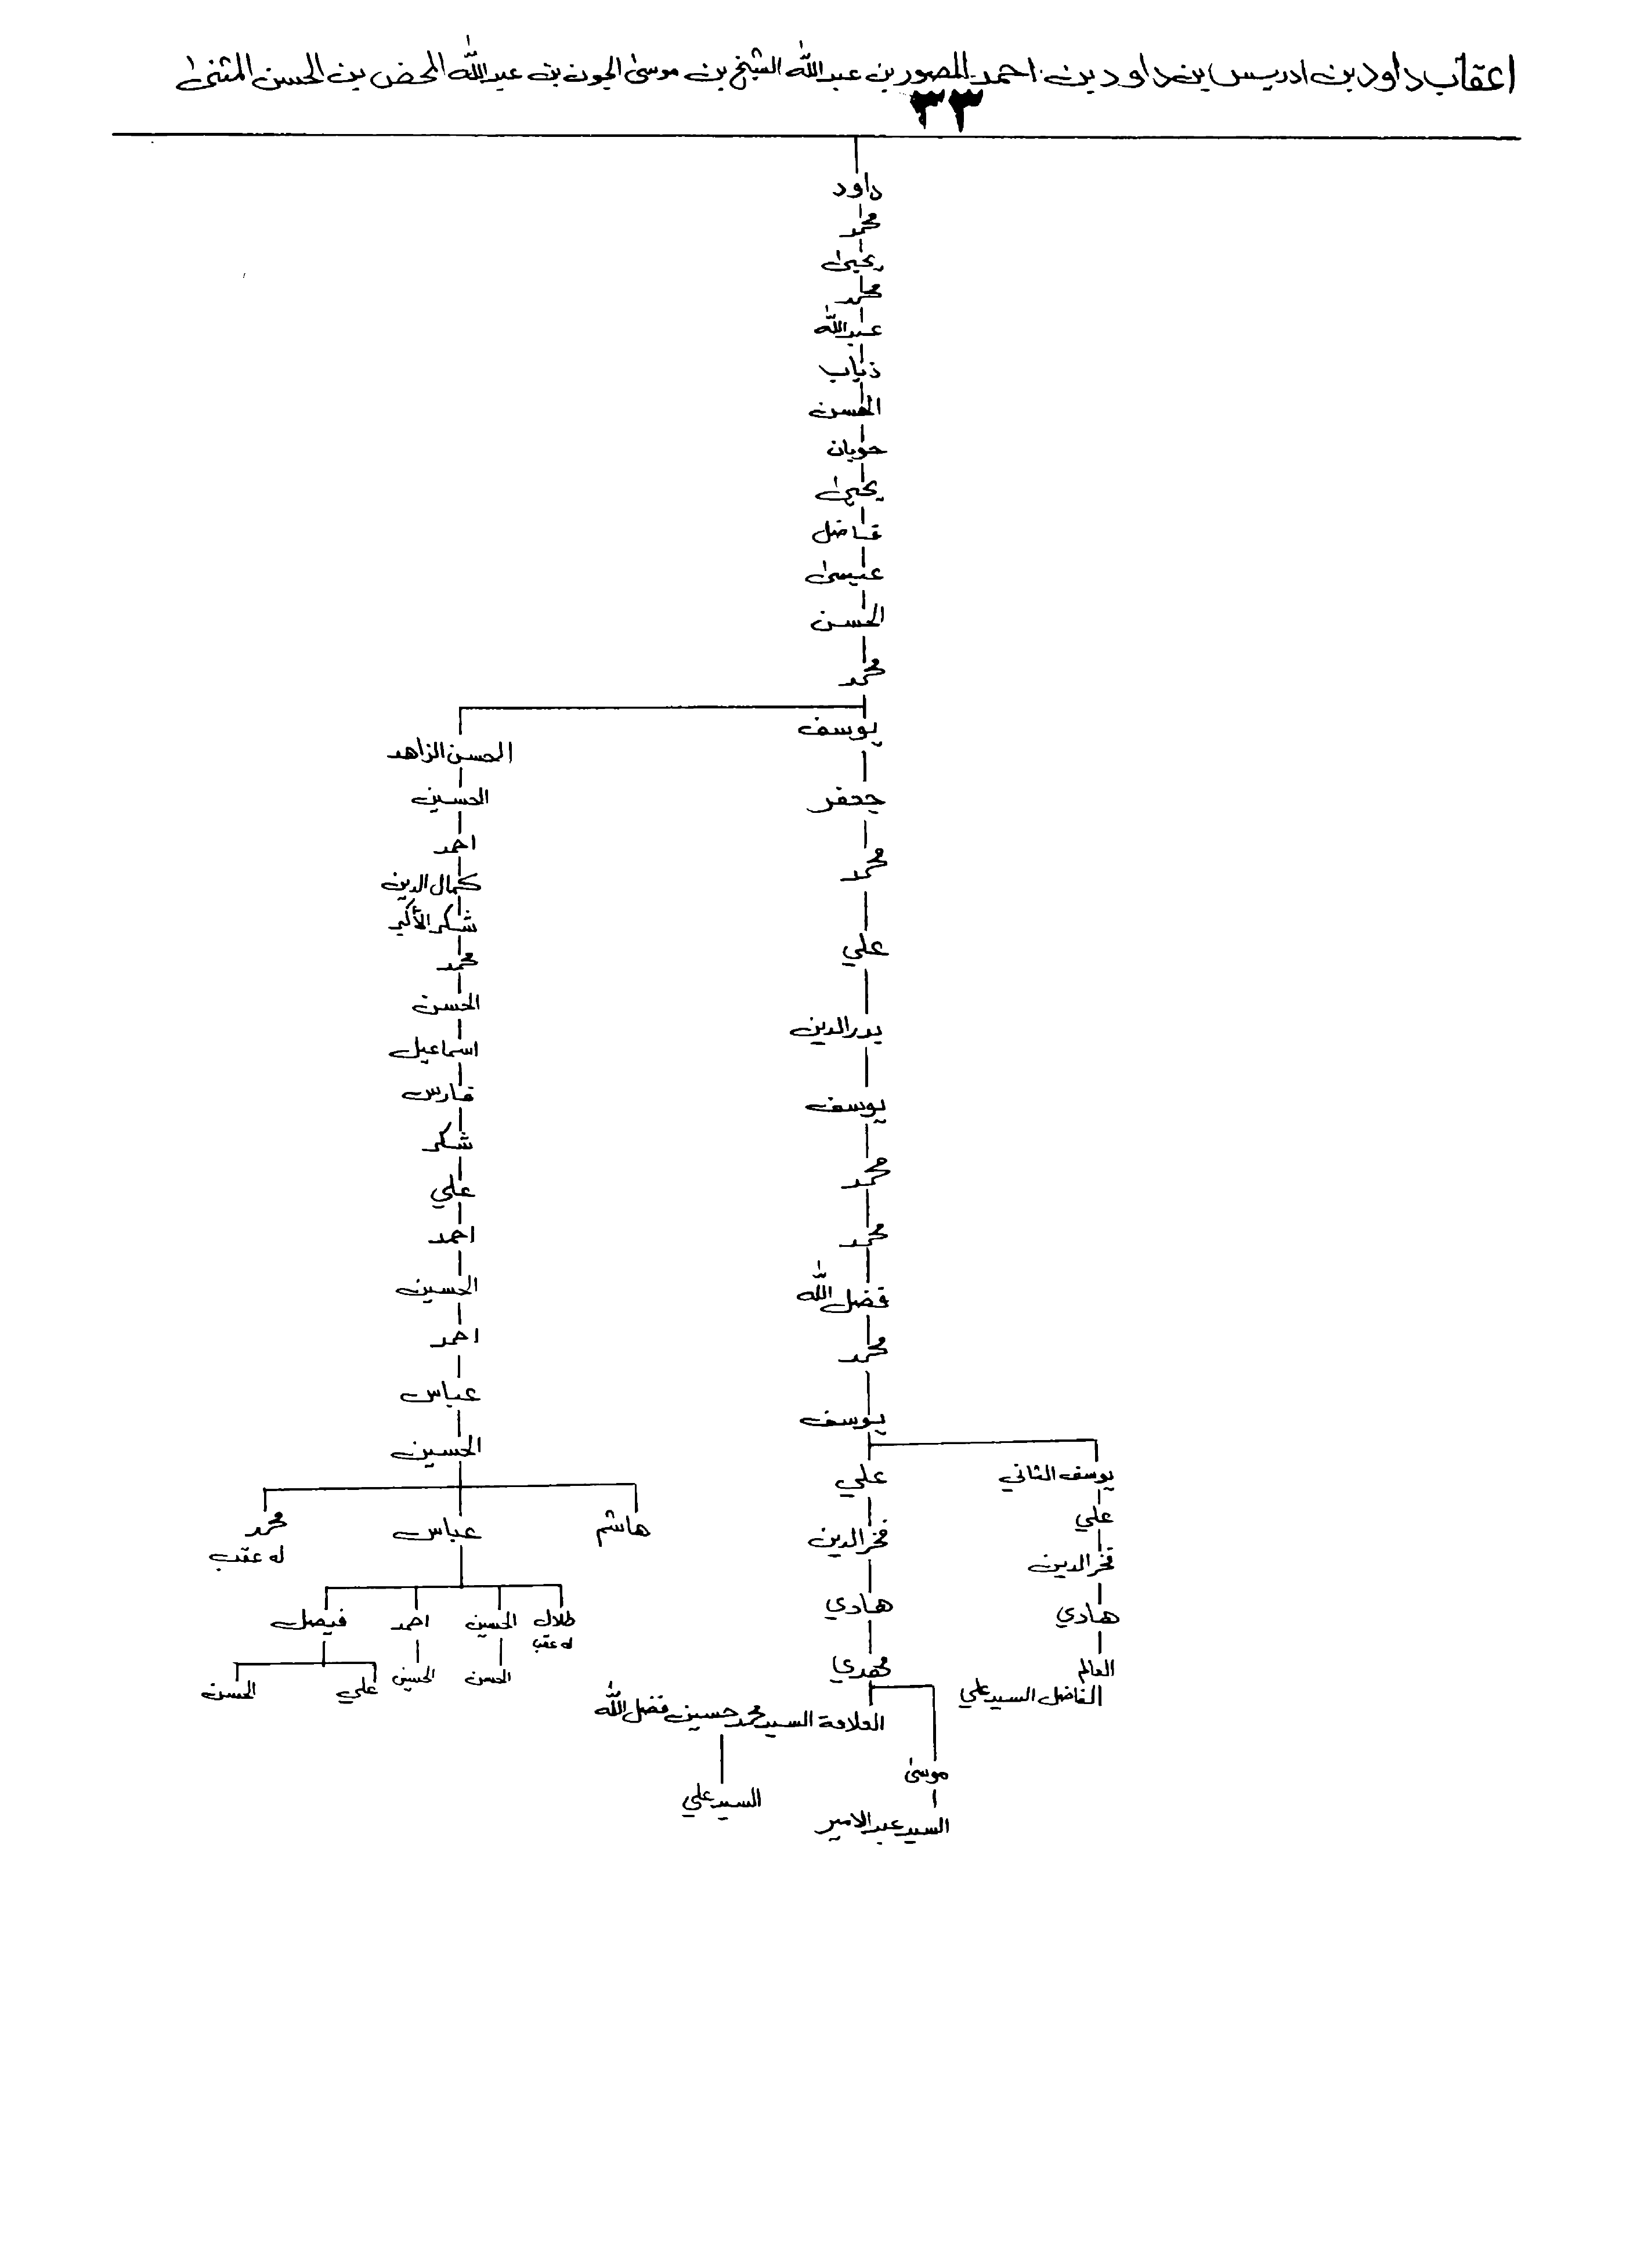 اعقاب داود بن ادريس بن داود بن احمد المصور بن عبدالله الشيخ بن موسى الجون بن عبدالله المحض بن الحسن المثنى
٣٣
داود
محمد
يحيى
محمد
عبدالله
ذياب
الحسن
حوبان
يحيى
فاضل
عيسى
الحسن
محمد
يوسف
جعفر
محمد
علي
بدر الدين
يوسف
محمد
محمد
فضل الله
محمد
يوسف
يوسف الثاني
علي
فخر الدين
هادي
العالم
الفاضل السيد علي
علي
فخر الدين
هادي
مهدي
موسى
السيد عبد الامير
العلامة السيد محمد حسين فضل الله
السيد علي
الحسن الزاهد
الحسين
احمد
كمال الدين
شكر الأكبر
محمد
الحسن
اسماعيل
فارس
شكر
علي
احمد
الحسين
احمد
عباس
الحسين
هاشم
عباس
محمد
له عقب
طلال
له عقب
الحسين
الحسن
احمد
الحسين
فيصل
علي
الحسن